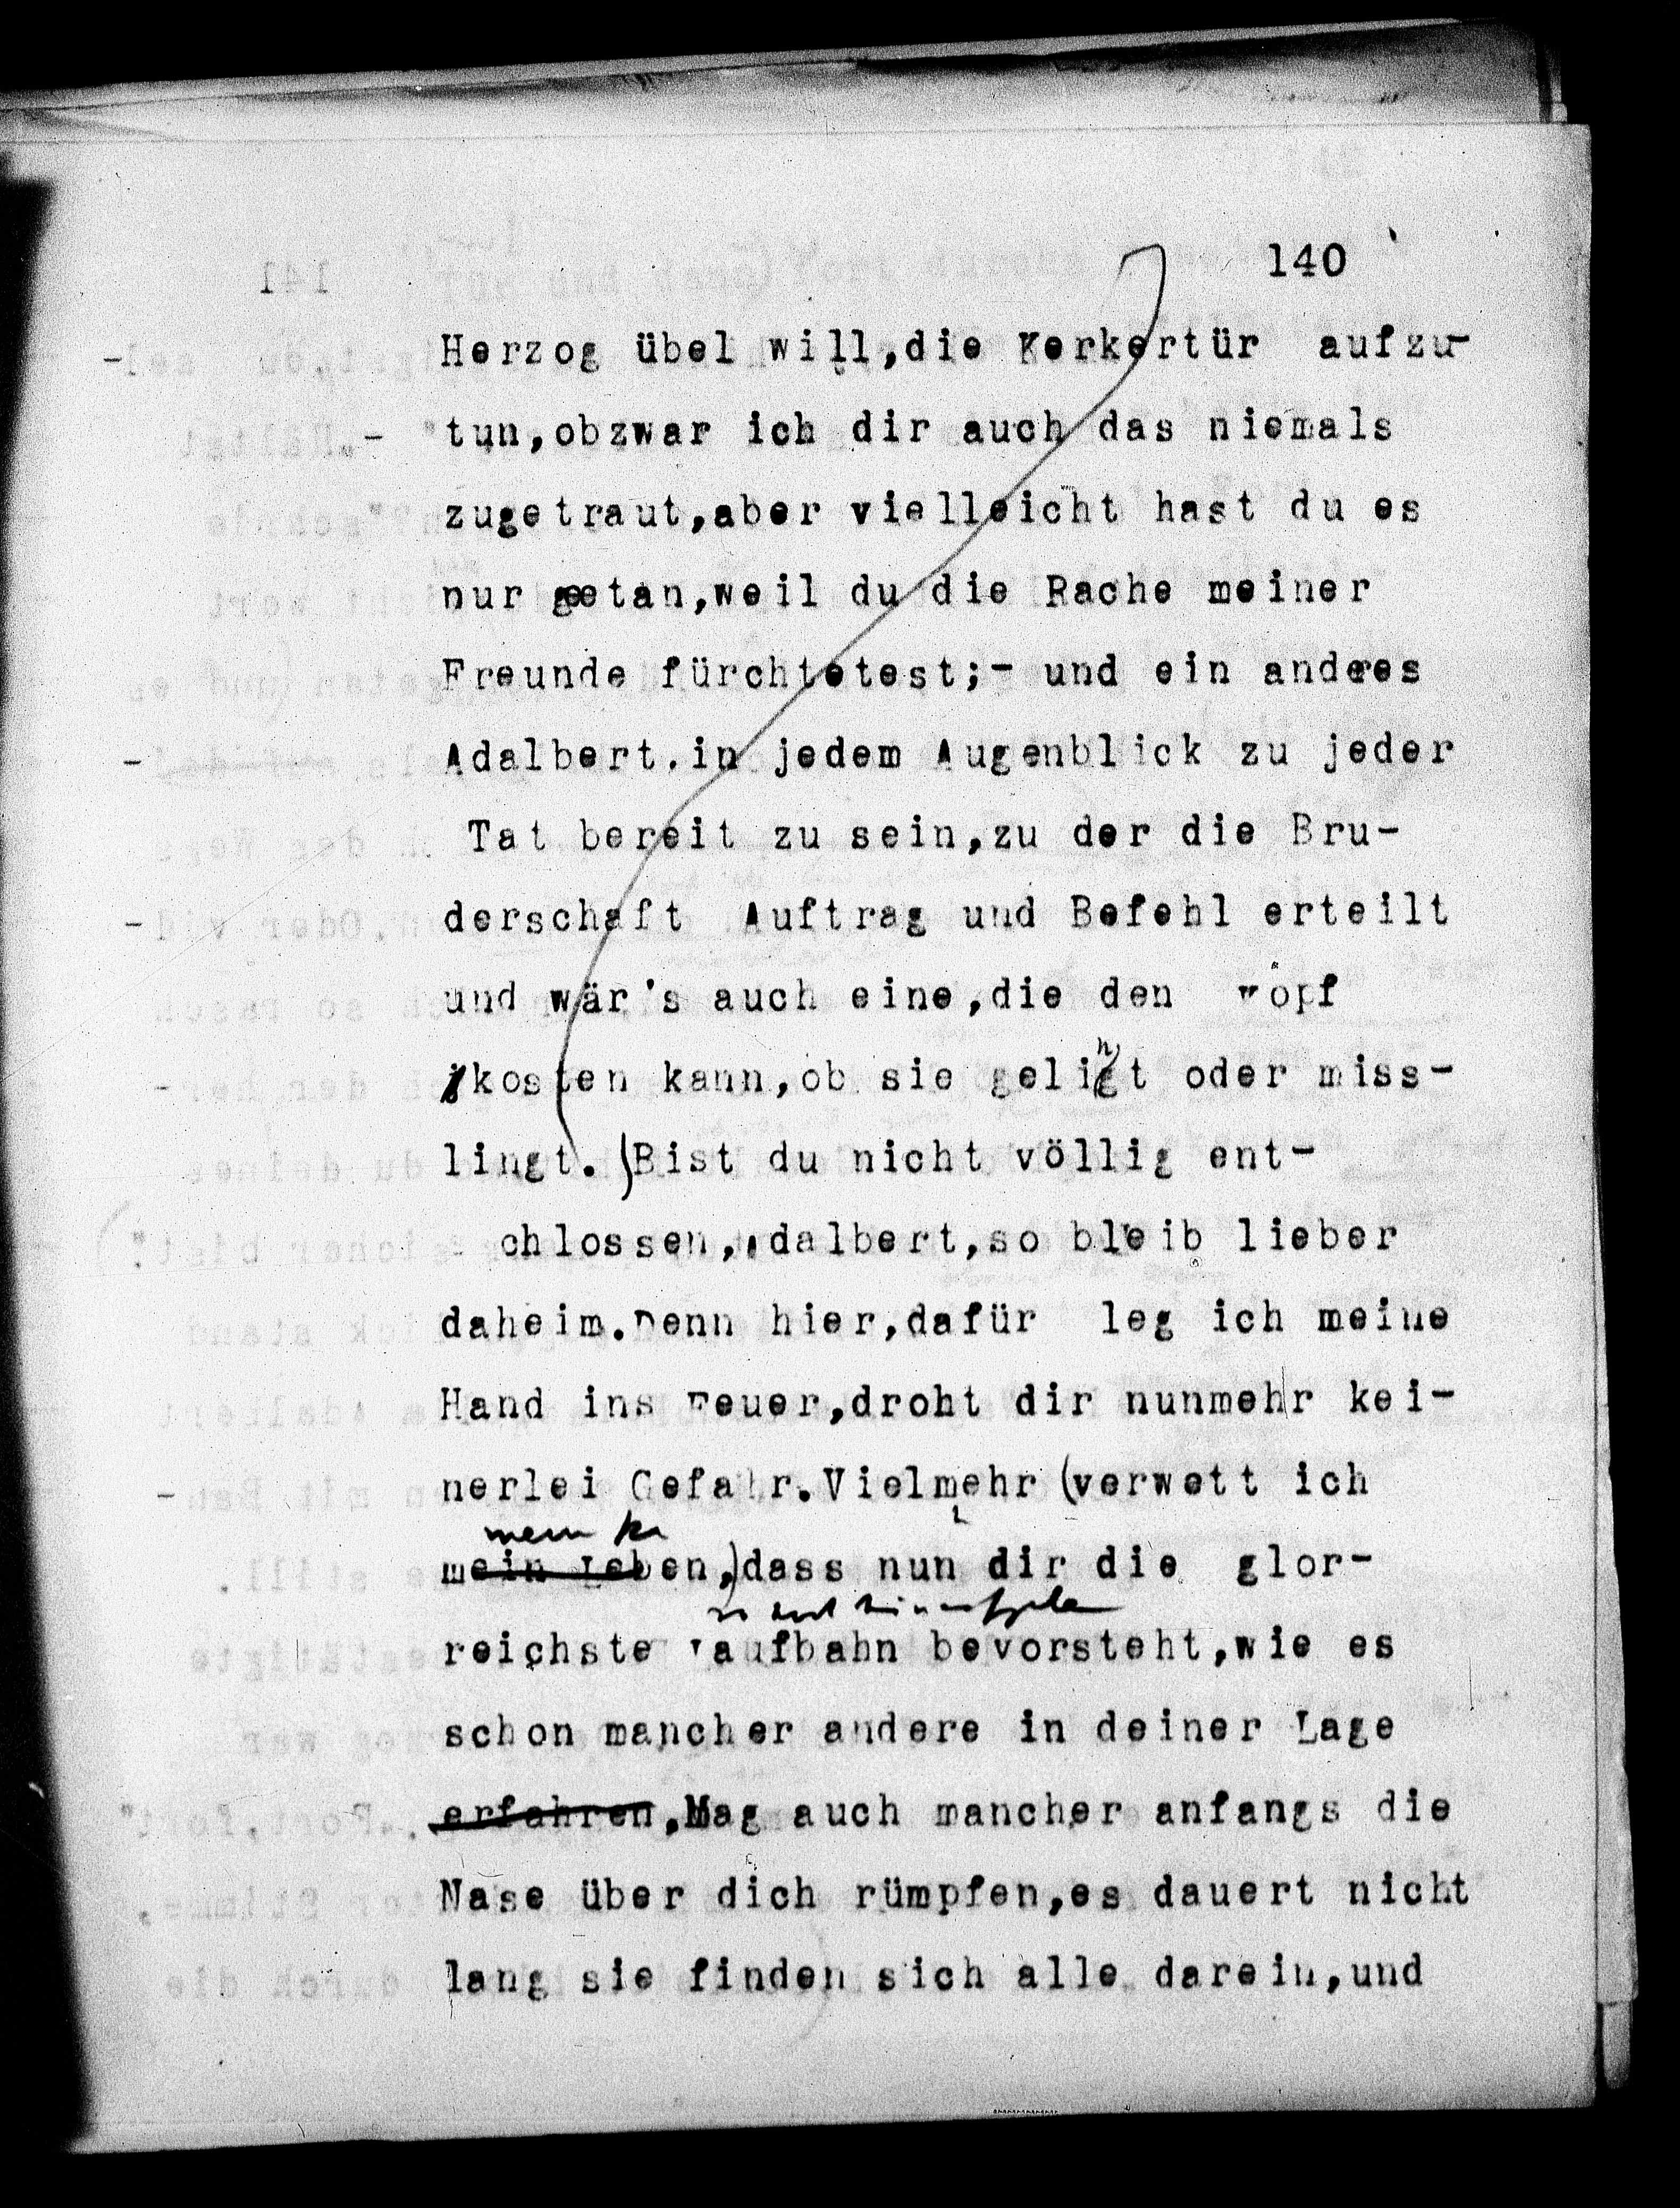 140
Herzog übel will,die Kerkertür aufzu-
tun,obzwar ich dir auch das niemals
zugetraut,aber vielleicht hast du es
nur getan,weil du die Rache meiner
Freunde fürchtetest;- und ein anderes
Adalbert,in jedem Augenblick zu jeder
Tat bereit zu sein,zu der die Bru-
derschaft Auftrag und Befehl erteilt
und wär's auch eine,die den Kopf
kosten kann,ob sie gelingt oder miss-
lingt.)Bist du nicht völlig ent-
chlossen,Adalbert,so bleib lieber
daheim.Denn hier,dafür leg ich meine
Hand ins Feuer,droht dir nunmehr kei-
nerlei Gefahr.Vielmehr (verwett ich
mein
mein Leben,)dass nun dir die glor-
reichste Laufbahn bevorsteht,wie es
schon mancher andere in deiner Lage
erfahren,Mag auch mancher anfangs die
Nase über dich rümpfen,es dauert nicht
lang sie finden sich alle darein,und